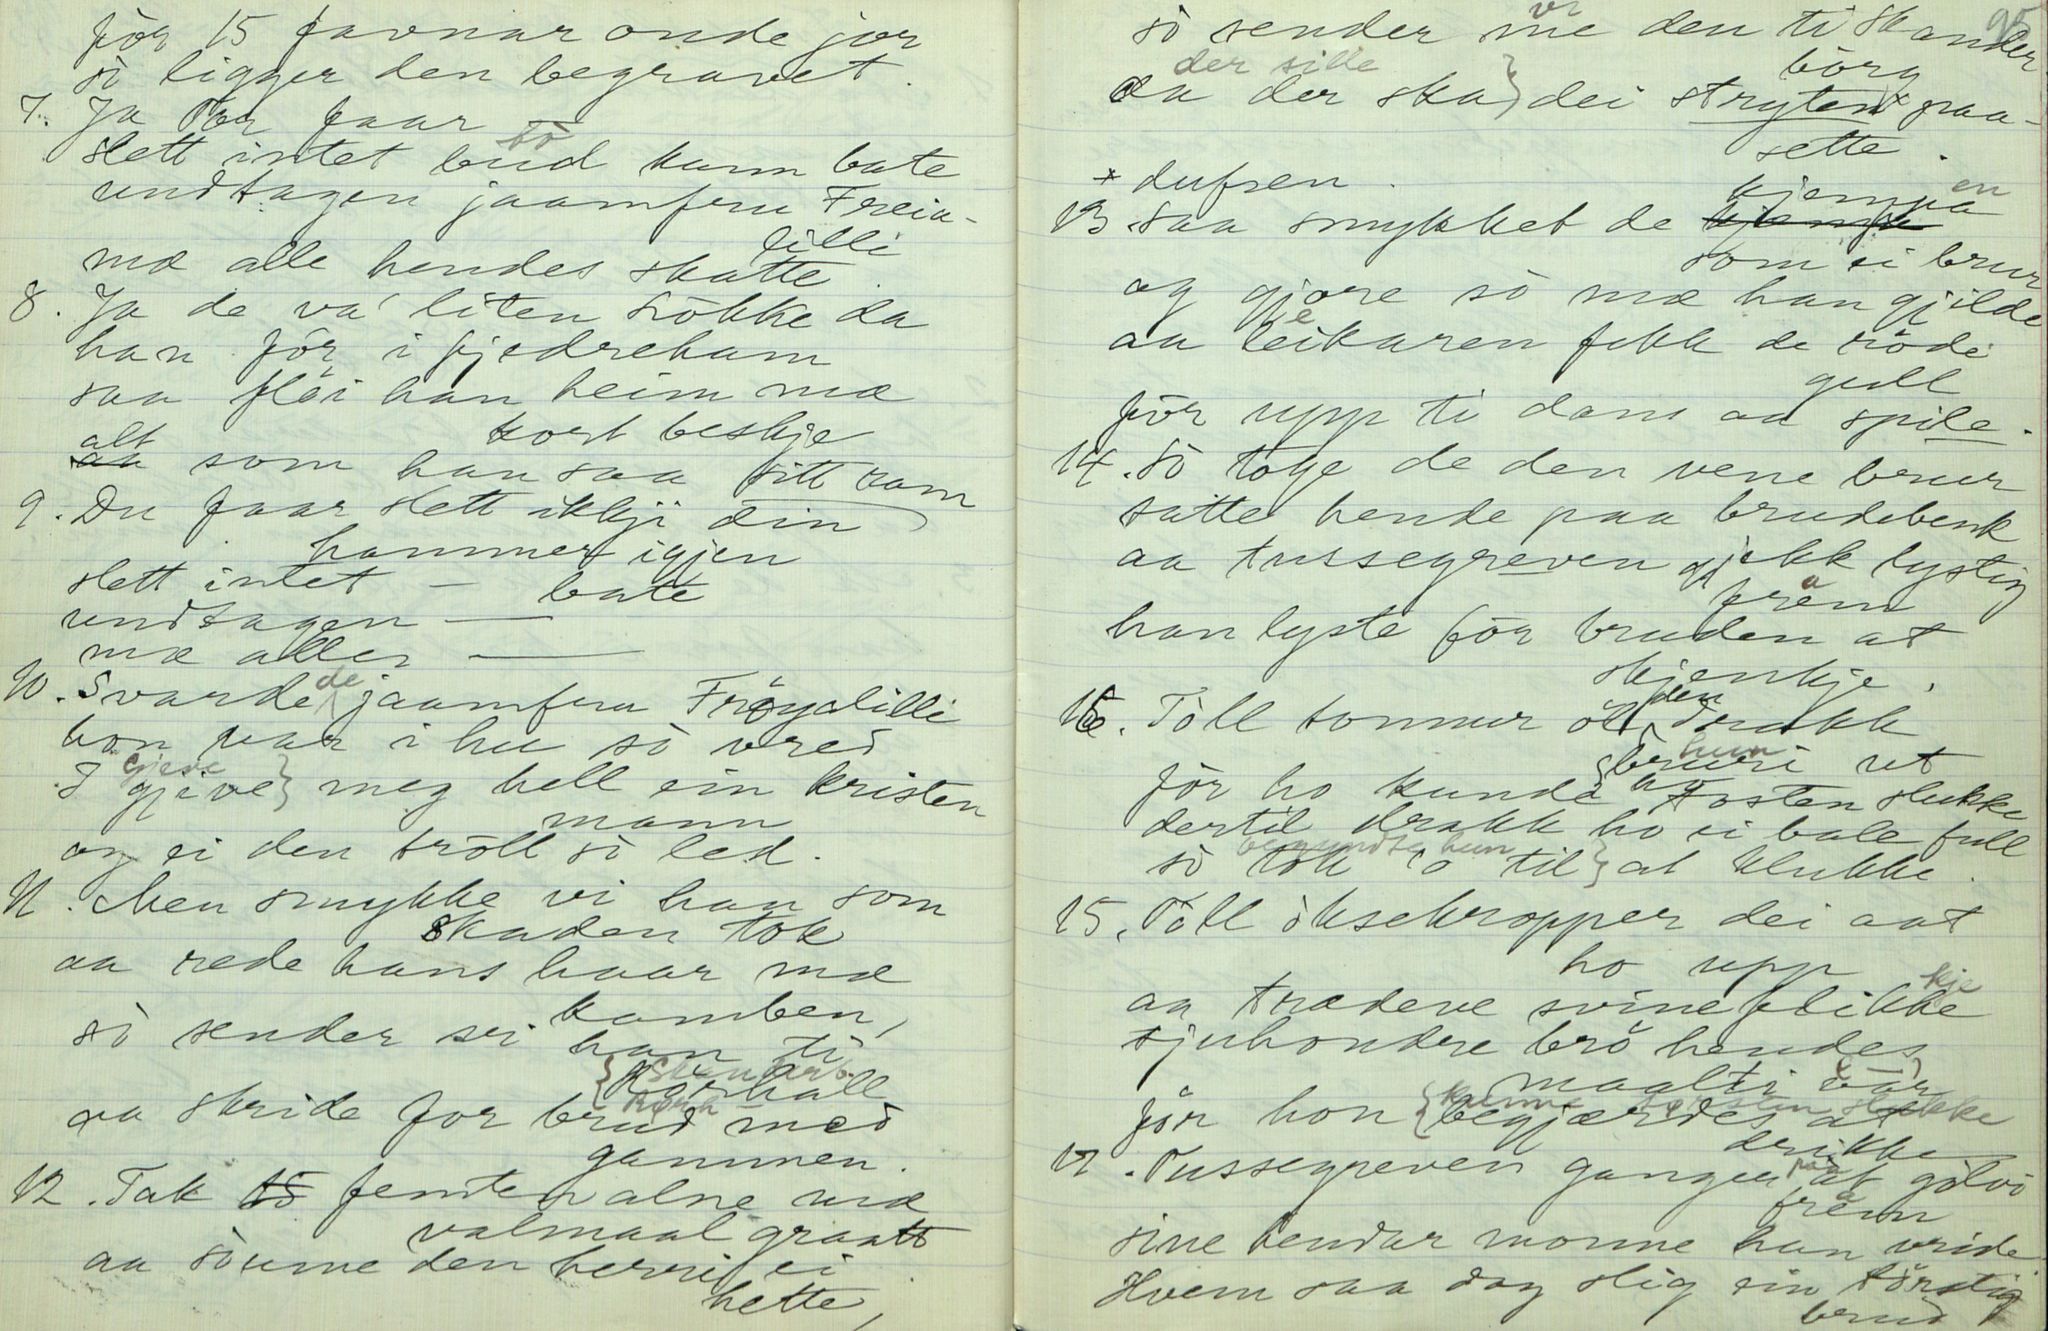 för 15 favnar onde jor
så ligger den begravet.
7. Ja Tor faar
slett intet bud kann bate
bö
undtagen jaamfru Freia-
lilli
mæ alle hendes skatte.
8. Ja de va' liten Lokke da
han för i fjedreham
saa fløi han heim mæ
kort beskje
alt som han saa sitt ram
9. Du faar slett ikkji din
hammer igjen
slett intet — bate
undtagen —
mæ alles —
10. Svarde de jaamfru Fröyalilli
hon var i hu så vred
I gjive } meg hell ein kristen
gjeve
mann
og ei den tröll så led.
11. Men smykke vi han som
skaden tok
aa rede hans haar mæ
kamben,
så sender vi han ti
aa skride for brud med
gammen.
12. Tak 15 femten alne vid
valmaal graatt
aa såumme den herri ei
hette,
95
så sender me den ti Skander-
vi
börg
da der ska } dei stryten* paa-
der sille
sette.
* dufsen.
13. Saa smykket de kjempa
en
som ei brur
og gjore så mæ han gjilde
aa leikaren fekk de röde
e
gull
för upp ti dans aa spile.
14. Så toge de den vene brur
satte hende paa brudebenk
aa tussegreven gjekk lystig
frem
a
han lyste för bruden at
skjenkje.
16. Toll tonnur öl den drakk
bruri ut
hun
för ho kunde torsten slukke
dertil drakk ho ei bale full
så tok 'o til } at klukke.
begyndte hun
15. Toll oksekropper dei aat
ho upp
aa trædeve svineflikke
kje
sjuhondre brö hendes
maalti var
för hon { begjærdes at
kunne torsten slukke
drikke
17. Tussegreven gangen at gölvi
paa
frem
a
sine hendar monne han vride
Hvem saa dog slig ein törstig
brud